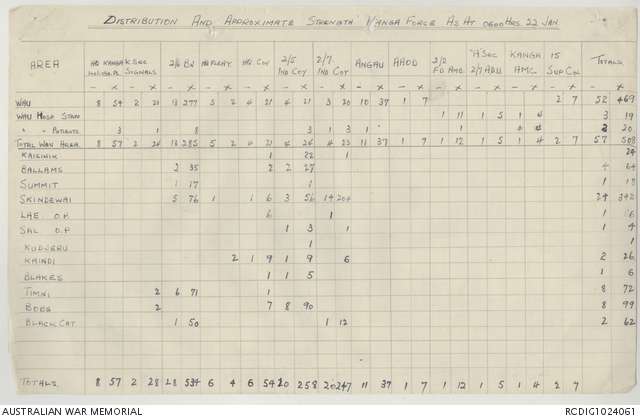 DISTRIBUTION AND APPROXIMATE STRENGTH KANGA FORCE AS AT 0600 HRS 22 JAN
AREA HQ KANGA & SEC SIGNALS 2/6 BN HQ FLEXY HQ COY 2/5 IND COY 2/7 IND COY ANGAU AAOD 2/2 FD AMB "A" SEC 2/7 ADU KANGA AMC 15 SUP COL TOTALS
WAU 8 54 2 21 13 277 5 2 4 21 4 21 3 20 10 37 1 7 2 7 52 469
WAU HOSP STAFF 1 11 1 5 1 4 3 19
" " PATIENTS 3 1 8 3 1 3 1 1 2 20
TOTAL WAU AREA 8 57 2 24 13 285 5 2 4 21 4 24 4 23 11 37 1 7 1 12 1 5 1 4 2 7 57 508
KAISINIK 1 22 1 24
BALLAMS 2 35 2 2 27 4 64
SUMMIT 1 17 1 1 18
SKINDEWAI 5 76 1 1 6 3 56 14 204 24 342
LAE O.P. 6 1 1 6
SAL O.P 1 3 1 1 4
KUDJERU 1 1
KAINDI 2 1 9 1 9 6 2 26
BLAKES 1 1 5 1 6
TIMNI 2 6 71 1 8 72
BOBS 2 7 8 90 8 99
BLACK CAT 1 50 1 12 2 62
TOTALS 8 57 2 28 28 534 6 4 6 54 20 258 20 247 11 37 1 7 1 12 1 5 1 4 2 7
AUSTRALIAN WAR MEMORIAL RCDIG1024061